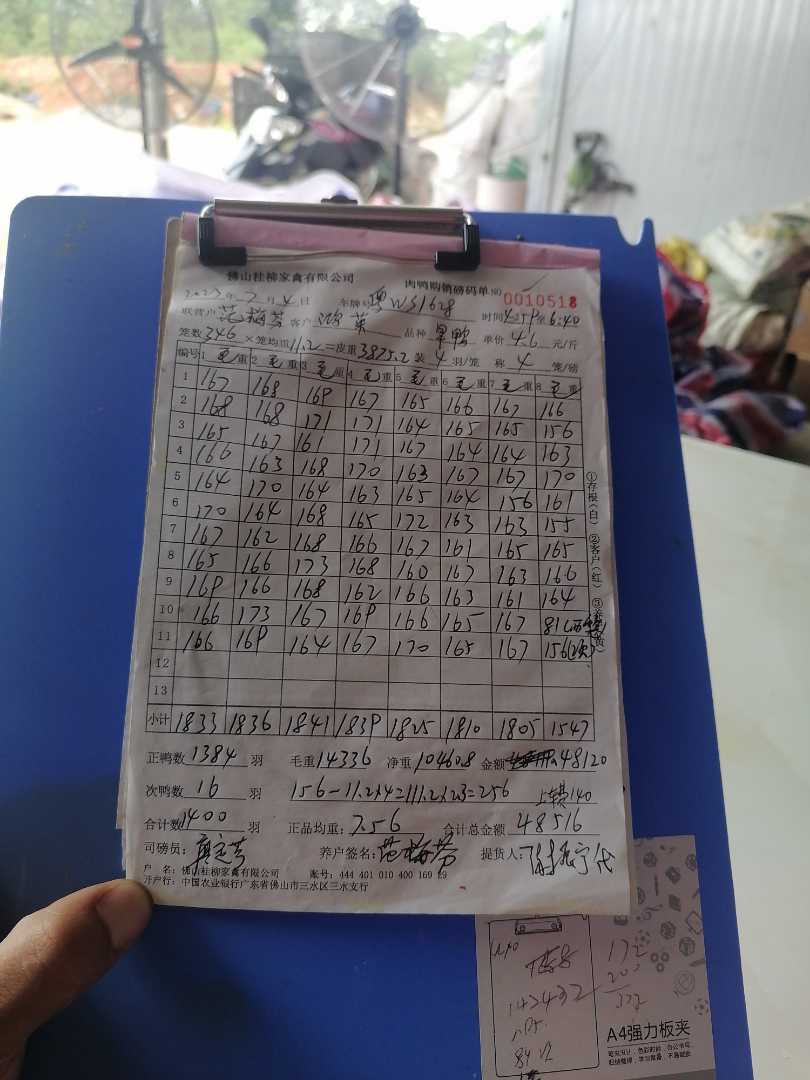 佛山桂柳家禽有限公司 肉鸭购销磅码单 NO 0010518
2023年7月4日 车牌号 粤WS1628
联营户 范梅芳 客户 鸿英 品种 旱鸭 时间 4:59至6:40
笼数 346 ×笼均重 11.2 =皮重 3875.2 装 4 羽/笼 称 4 笼/磅 单价 4.6 元/斤
编号 1 毛重 2 毛重 3 毛重 4 毛重 5 毛重 6 毛重 7 毛重 8 毛重
1 167 168 169 167 165 166 167 166
2 168 168 171 171 164 165 165 156
3 165 167 161 171 167 164 164 163
4 166 163 168 170 163 167 167 170
5 164 170 164 163 165 164 156 161
6 170 164 168 165 172 163 163 155
7 167 162 168 166 167 161 165 165
8 165 166 173 168 160 167 163 166
9 169 166 168 162 166 163 161 164
10 166 173 167 169 166 165 167 81
11 166 169 164 167 170 165 167 156
12
13
小计 1833 1836 1841 1839 1825 1810 1805 1547
正鸭数 1384 羽 毛重 14336 净重 10460.8 金额 48120
次鸭数 16 羽 156-11.2×4=111.2×2.3=256 上车费140
合计数 1400 羽 正品均重: 7.56 合计总金额 48516
司磅员: 养户签名: 范梅芳 提货人:
户 名: 佛山桂柳家禽有限公司 账号: 444 401 010 400 169 29
开户行: 中国农业银行广东省佛山市三水区三水支行
①存根(白) ②客户(红) ③
A4强力板夹